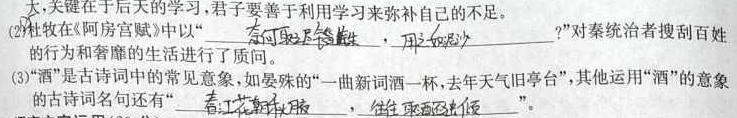 太,关键在于后天的学习,君子要善于利用学习来弥补自己的不足。
(2)杜牧在《阿房宫赋》中以“奈何取之尽锱铢,用之如泥沙?”对秦统治者搜刮百姓
的行为和奢靡的生活进行了质问。
(3)“酒”是古诗词中的常见意象,如晏殊的“一曲新词酒一杯,去年天气旧亭台”,其他运用“酒”的意象
的古诗词名句还有“春江花朝秋月夜,往往取酒还独倾”。